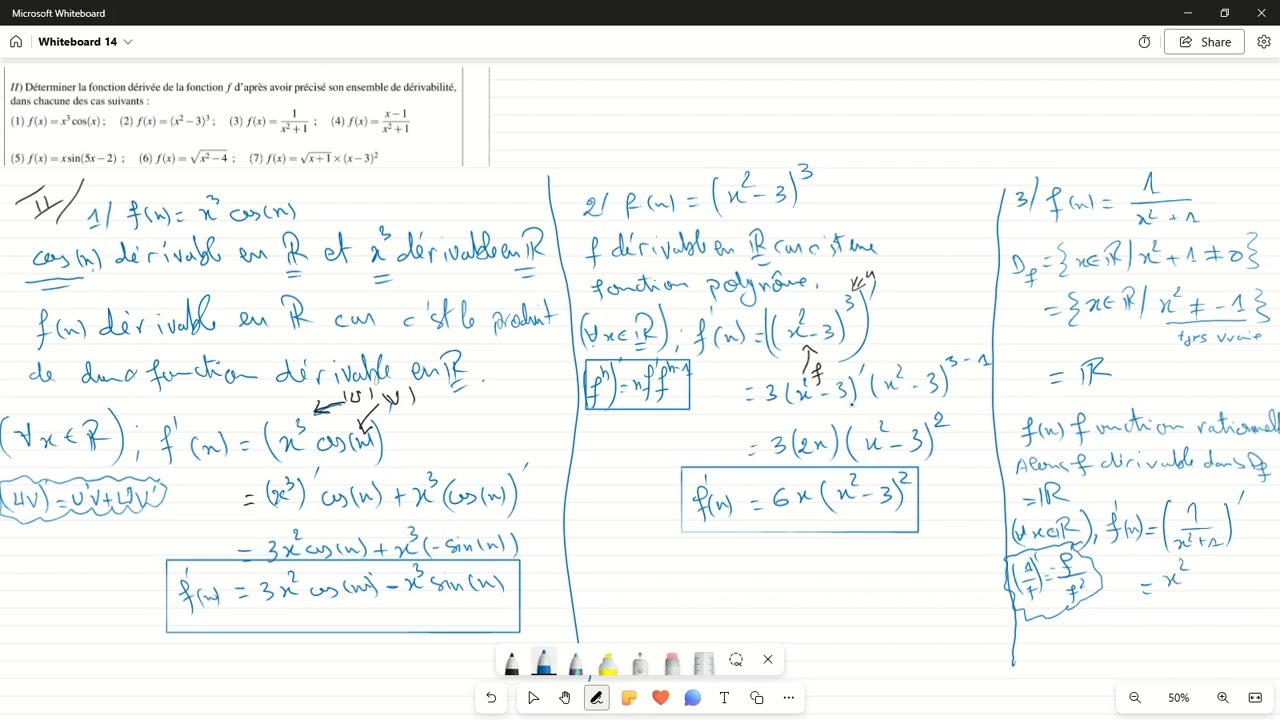 Microsoft Whiteboard
Whiteboard 14
Share
II) Déterminer la fonction dérivée de la fonction f d'après avoir précisé son ensemble de dérivabilité,
dans chacune des cas suivants :
(1) f(x) = x³cos(x) ; (2) f(x) = (x² − 3)³ ; (3) f(x) = 1/(x²+1) ; (4) f(x) = (x−1)/(x²+1)
(5) f(x) = x sin(5x − 2) ; (6) f(x) = √(x² − 4) ; (7) f(x) = √(x+1) × (x − 3)²
II/ 1/ f(x) = x³ cos(x)
cos(x) dérivable en ℝ et x³ dérivable en ℝ
f(x) dérivable en ℝ car c'est le produit
de deux fonction dérivable en ℝ.
(U) (V)
(∀x ∈ ℝ) ; f'(x) = (x³ cos(x))'
(UV)' = U'V + UV' = (x³)' cos(x) + x³ (cos(x))'
= 3x² cos(x) + x³(-sin(x))
f'(x) = 3x² cos(x) - x³ sin(x)
2/ f(x) = (x² - 3)³
f dérivable en ℝ car c'est une
fonction polynôme.
(∀x ∈ ℝ) ; f'(x) = ((x² - 3)³)'
f
(fⁿ)' = n f' fⁿ⁻¹ = 3(x² - 3)' (x² - 3)³⁻¹
= 3(2x)(x² - 3)²
f'(x) = 6x(x² - 3)²
3/ f(x) = 1/(x² + 1)
Df = {x ∈ ℝ / x² + 1 ≠ 0}
= {x ∈ ℝ / x² ≠ -1}
tjrs vraie
= ℝ
f(x) fonction rationnel
Alors f dérivable dans Df
= ℝ
(∀x ∈ ℝ), f'(x) = (1/(x² + 1))'
(1/f)' = -f'/f² = x²
50%